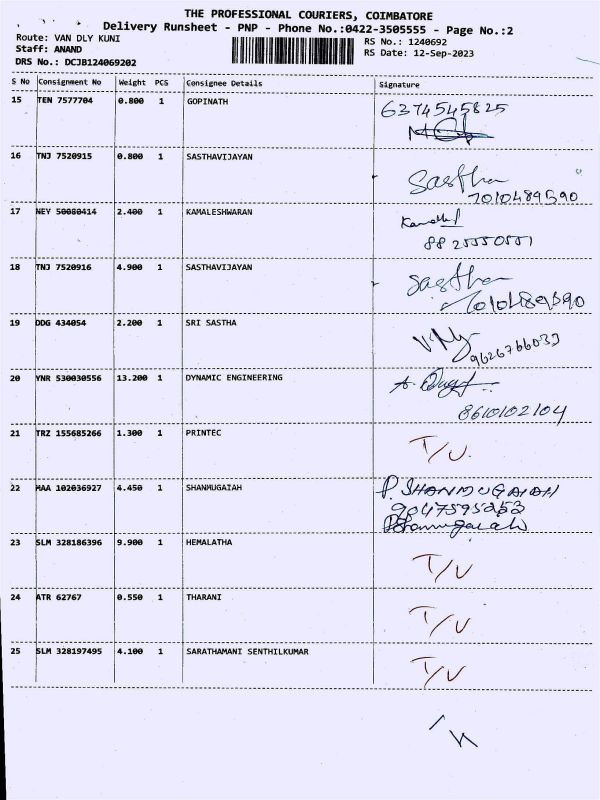 THE PROFESSIONAL COURIERS, COIMBATORE
Delivery Runsheet - PNP - Phone No.:0422-3505555 - Page No.:2
Route: VAN DLY KUNI
RS No.: 1240692
Staff: ANAND
RS Date: 12-Sep-2023
DRS No.: DCJB124069202
S No Consignment No Weight PCS Consignee Details Signature
15 TEN 7577704 0.800 1 GOPINATH 6374545825
16 TNJ 7520915 0.800 1 SASTHAVIJAYAN Sastha
7010489590
17 NEY 50080414 2.400 1 KAMALESHWARAN
18 TNJ 7520916 4.900 1 SASTHAVIJAYAN Sastha
7010489590
19 DDG 434054 2.200 1 SRI SASTHA
9626766033
20 YNR 530030556 13.200 1 DYNAMIC ENGINEERING
8610102104
21 TRZ 155685266 1.300 1 PRINTEC T/U.
22 MAA 102036927 4.450 1 SHANMUGAIAH P. SHANMUGAIAH
9047595253
23 SLM 328186396 9.900 1 HEMALATHA T/U
24 ATR 62767 0.550 1 THARANI T/U
25 SLM 328197495 4.100 1 SARATHAMANI SENTHILKUMAR T/U